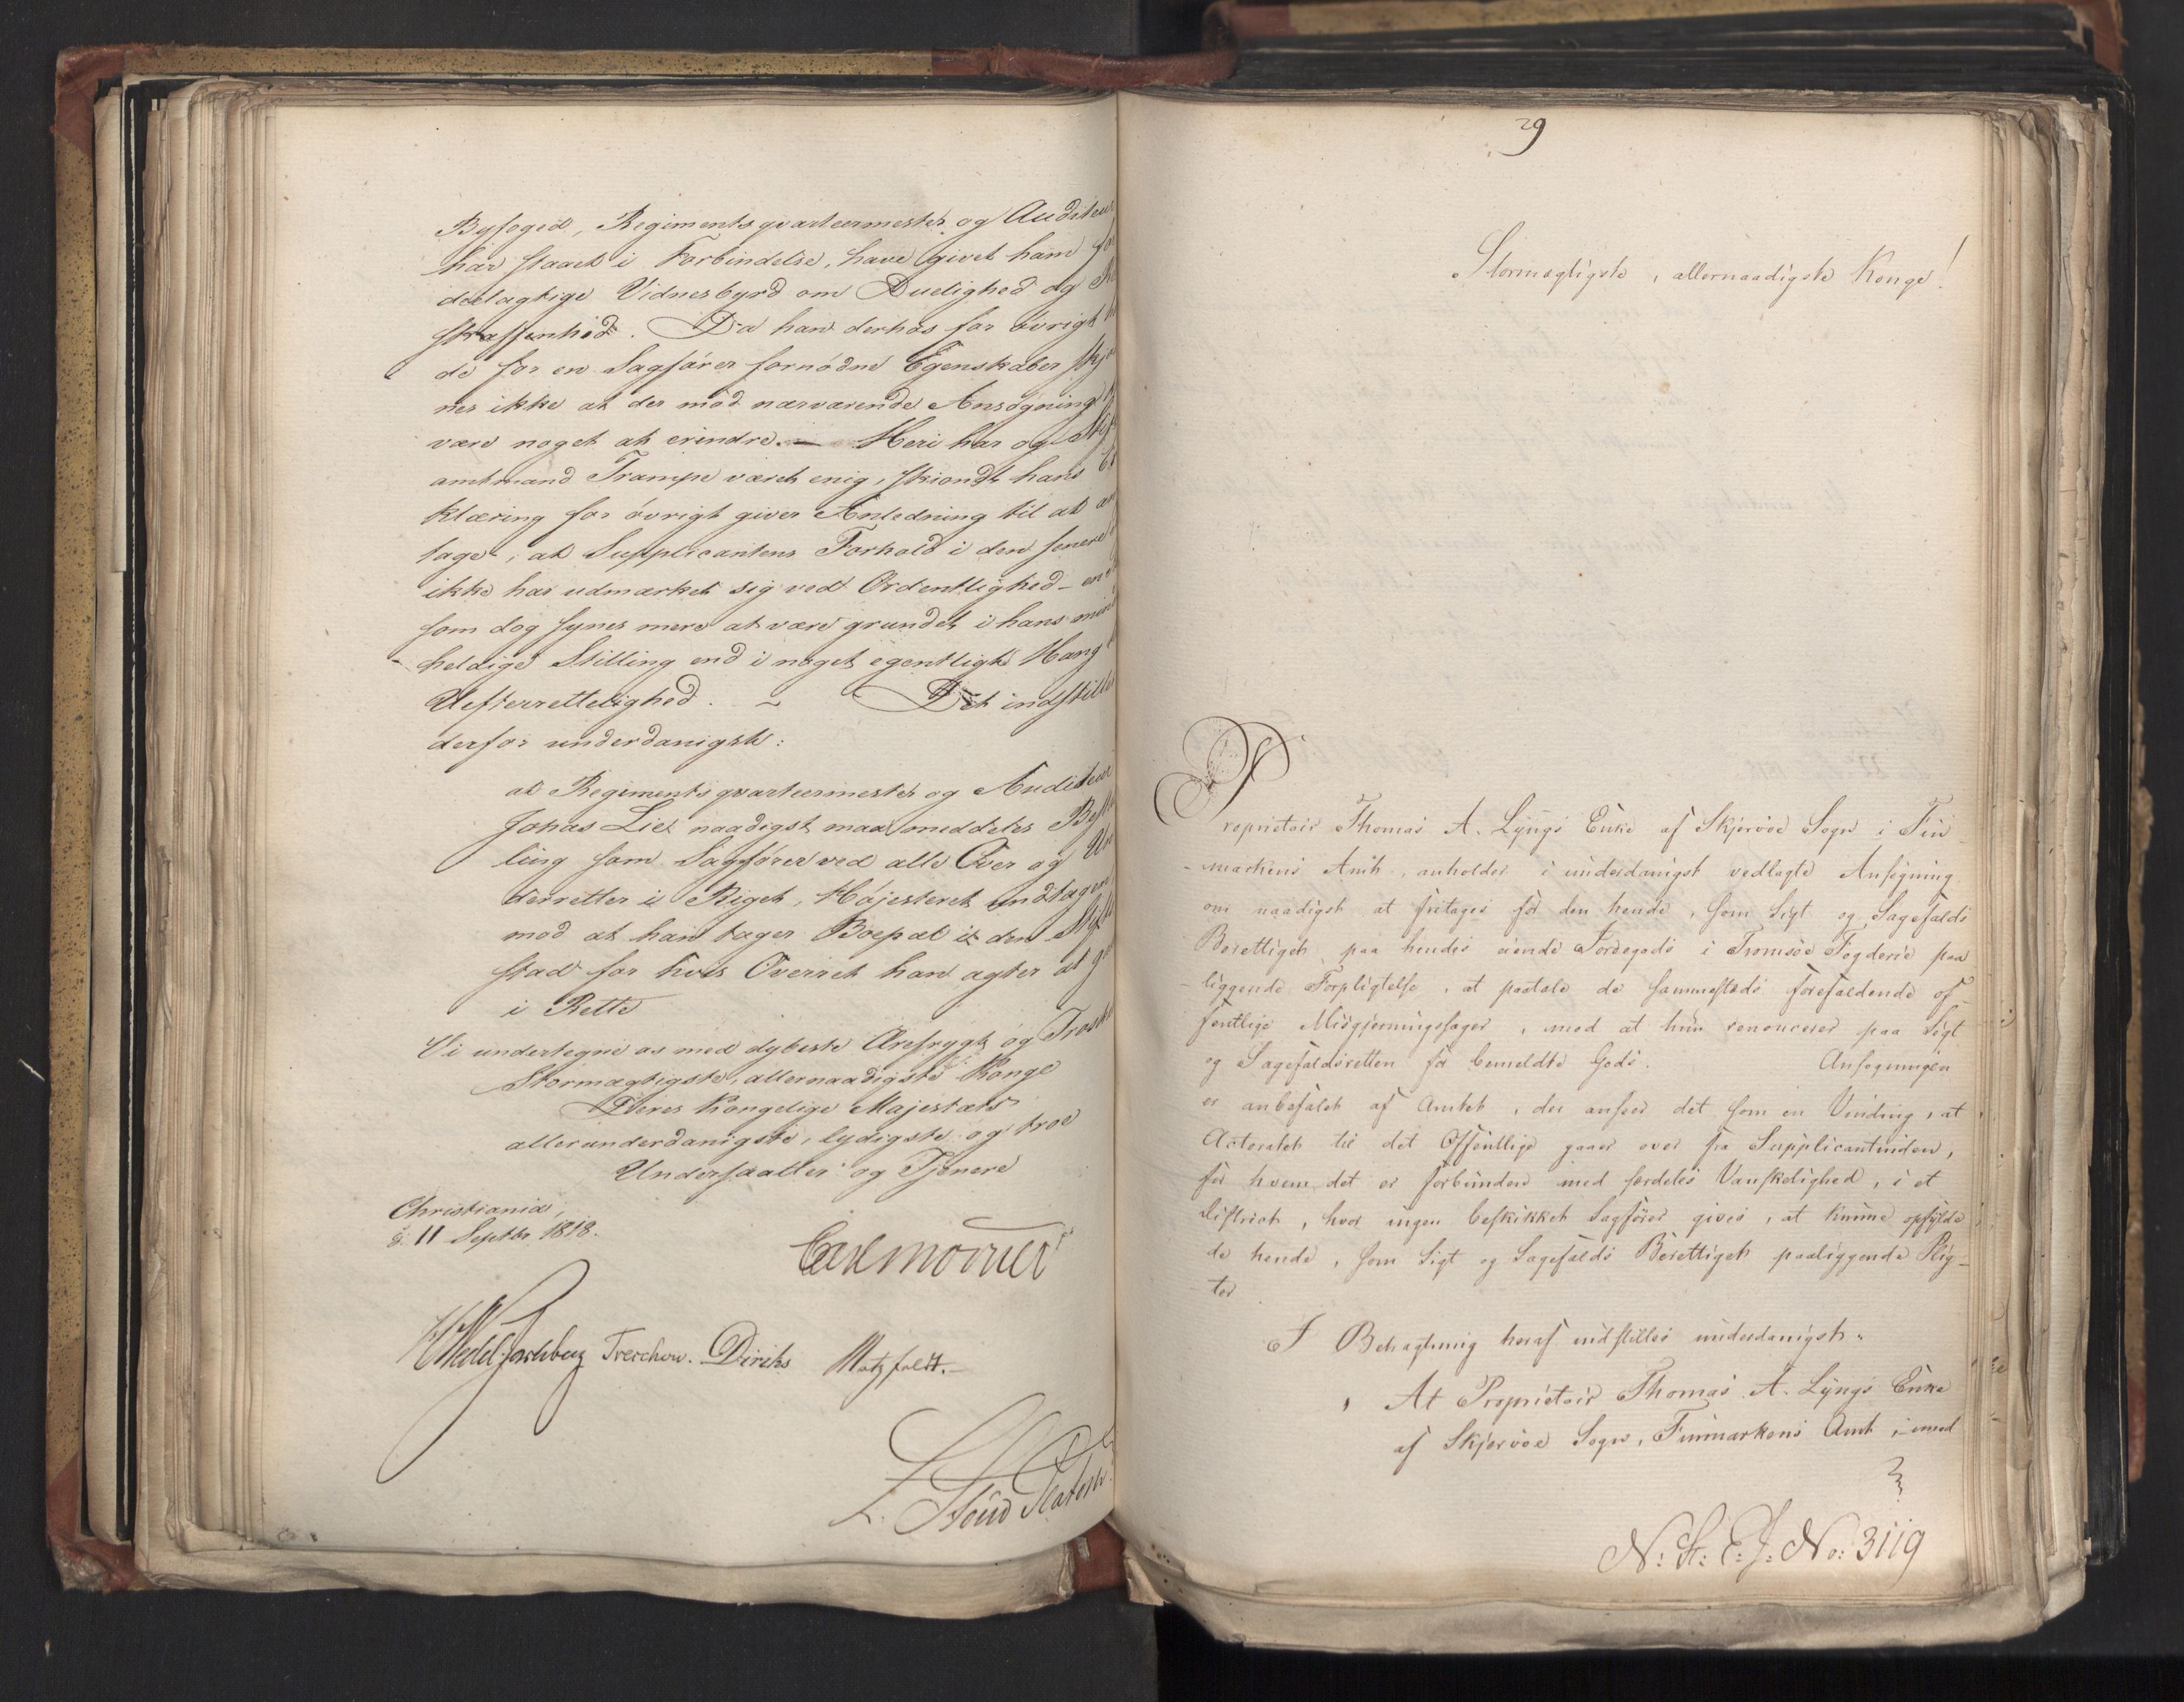 Byfoged, Regimentsqvarteermester og Auditeur
har staaet i Forbindelse, have givet ham for
deelagtige Vidnesbyrd om Duelighed og
skaffenhed. Da han derhos for övrigt
de for en Sagförer fornödne Egenskaber
nes ikke at der mod nærværende Ansögning
være noget at erindre. — Heri har og Stift
amtmand Trampe været enig, skiöndt hans Er
klæring for övrigt giver Anledning til at an
tage, at Supplicantens Forhold i den senere
ikke har udmærket sig ved Ordentlighed -
som dog synes mere at være grundet i hans mind
heldige Stilling end i noget egentligt Hang
Uefterrettelighed. ~ Det indstilles
derfor underdanigst:
at Regimentsqvarteermester og Auditeur
Jonas Lie naadigst maa meddeles Bestal
ling som Sagförer ved alle Over og Un
derretter i Riget, Höjesteret undtagen
mod at han tager Boepæl i den Stift
stad for hvis Overret han agter at gaae
i Rette
Vi undertegne os med dybeste Ærefrygt og Troskab
Stormægtigste, allernaadigste Konge
Deres Kongelige Majestæts
allerunderdanigste, lydigste og troe
Undersaatter og Tjenere
Christiania,
d. 11 Septbr. 1818.
Carl Mörner
HWedel Jarlsberg Treschow. Diriks Motzfeldt.
29
Stormægtigste, allernaadigste Konge!
Proprietair Thomas A. Lyngs Enke af Skjervöe Sogn i Fin
-markens Amt, anholder i underdanigst vedlagte Ansögning
om naadigst at fritages for den hende, som Sigt og Sagefalds
Berettiget, paa hendes eiende Jordegods i Tromsöe Fogderie paa
-liggende Forpligtelse, at paatale de sammesteds forefaldende of-
fentlige Misgjerningssager, mod at hun renoncerer paa Sigt
og Sagefaldsretten for bemeldte Gods. Ansögningen
er anbefalet af Amtet, der anseer det som en Vinding, at
Actoratet til det Offentlige gaaer over fra Supplicantinden,
for hvem det er forbunden med særdeles Vanskelighed, i et
District, hvor ingen beskikket Sagförer gives, at kunne opfylde
de hende, som Sigt og Sagefalds Berettiget paaliggende Plig-
ter
I Betragtning heraf indstilles underdanigst:
At Proprietair Thomas A. Lyngs Enke
af Skjervöe Sogn, Finmarkens Amt, imod
N: St: E: J: No: 3119